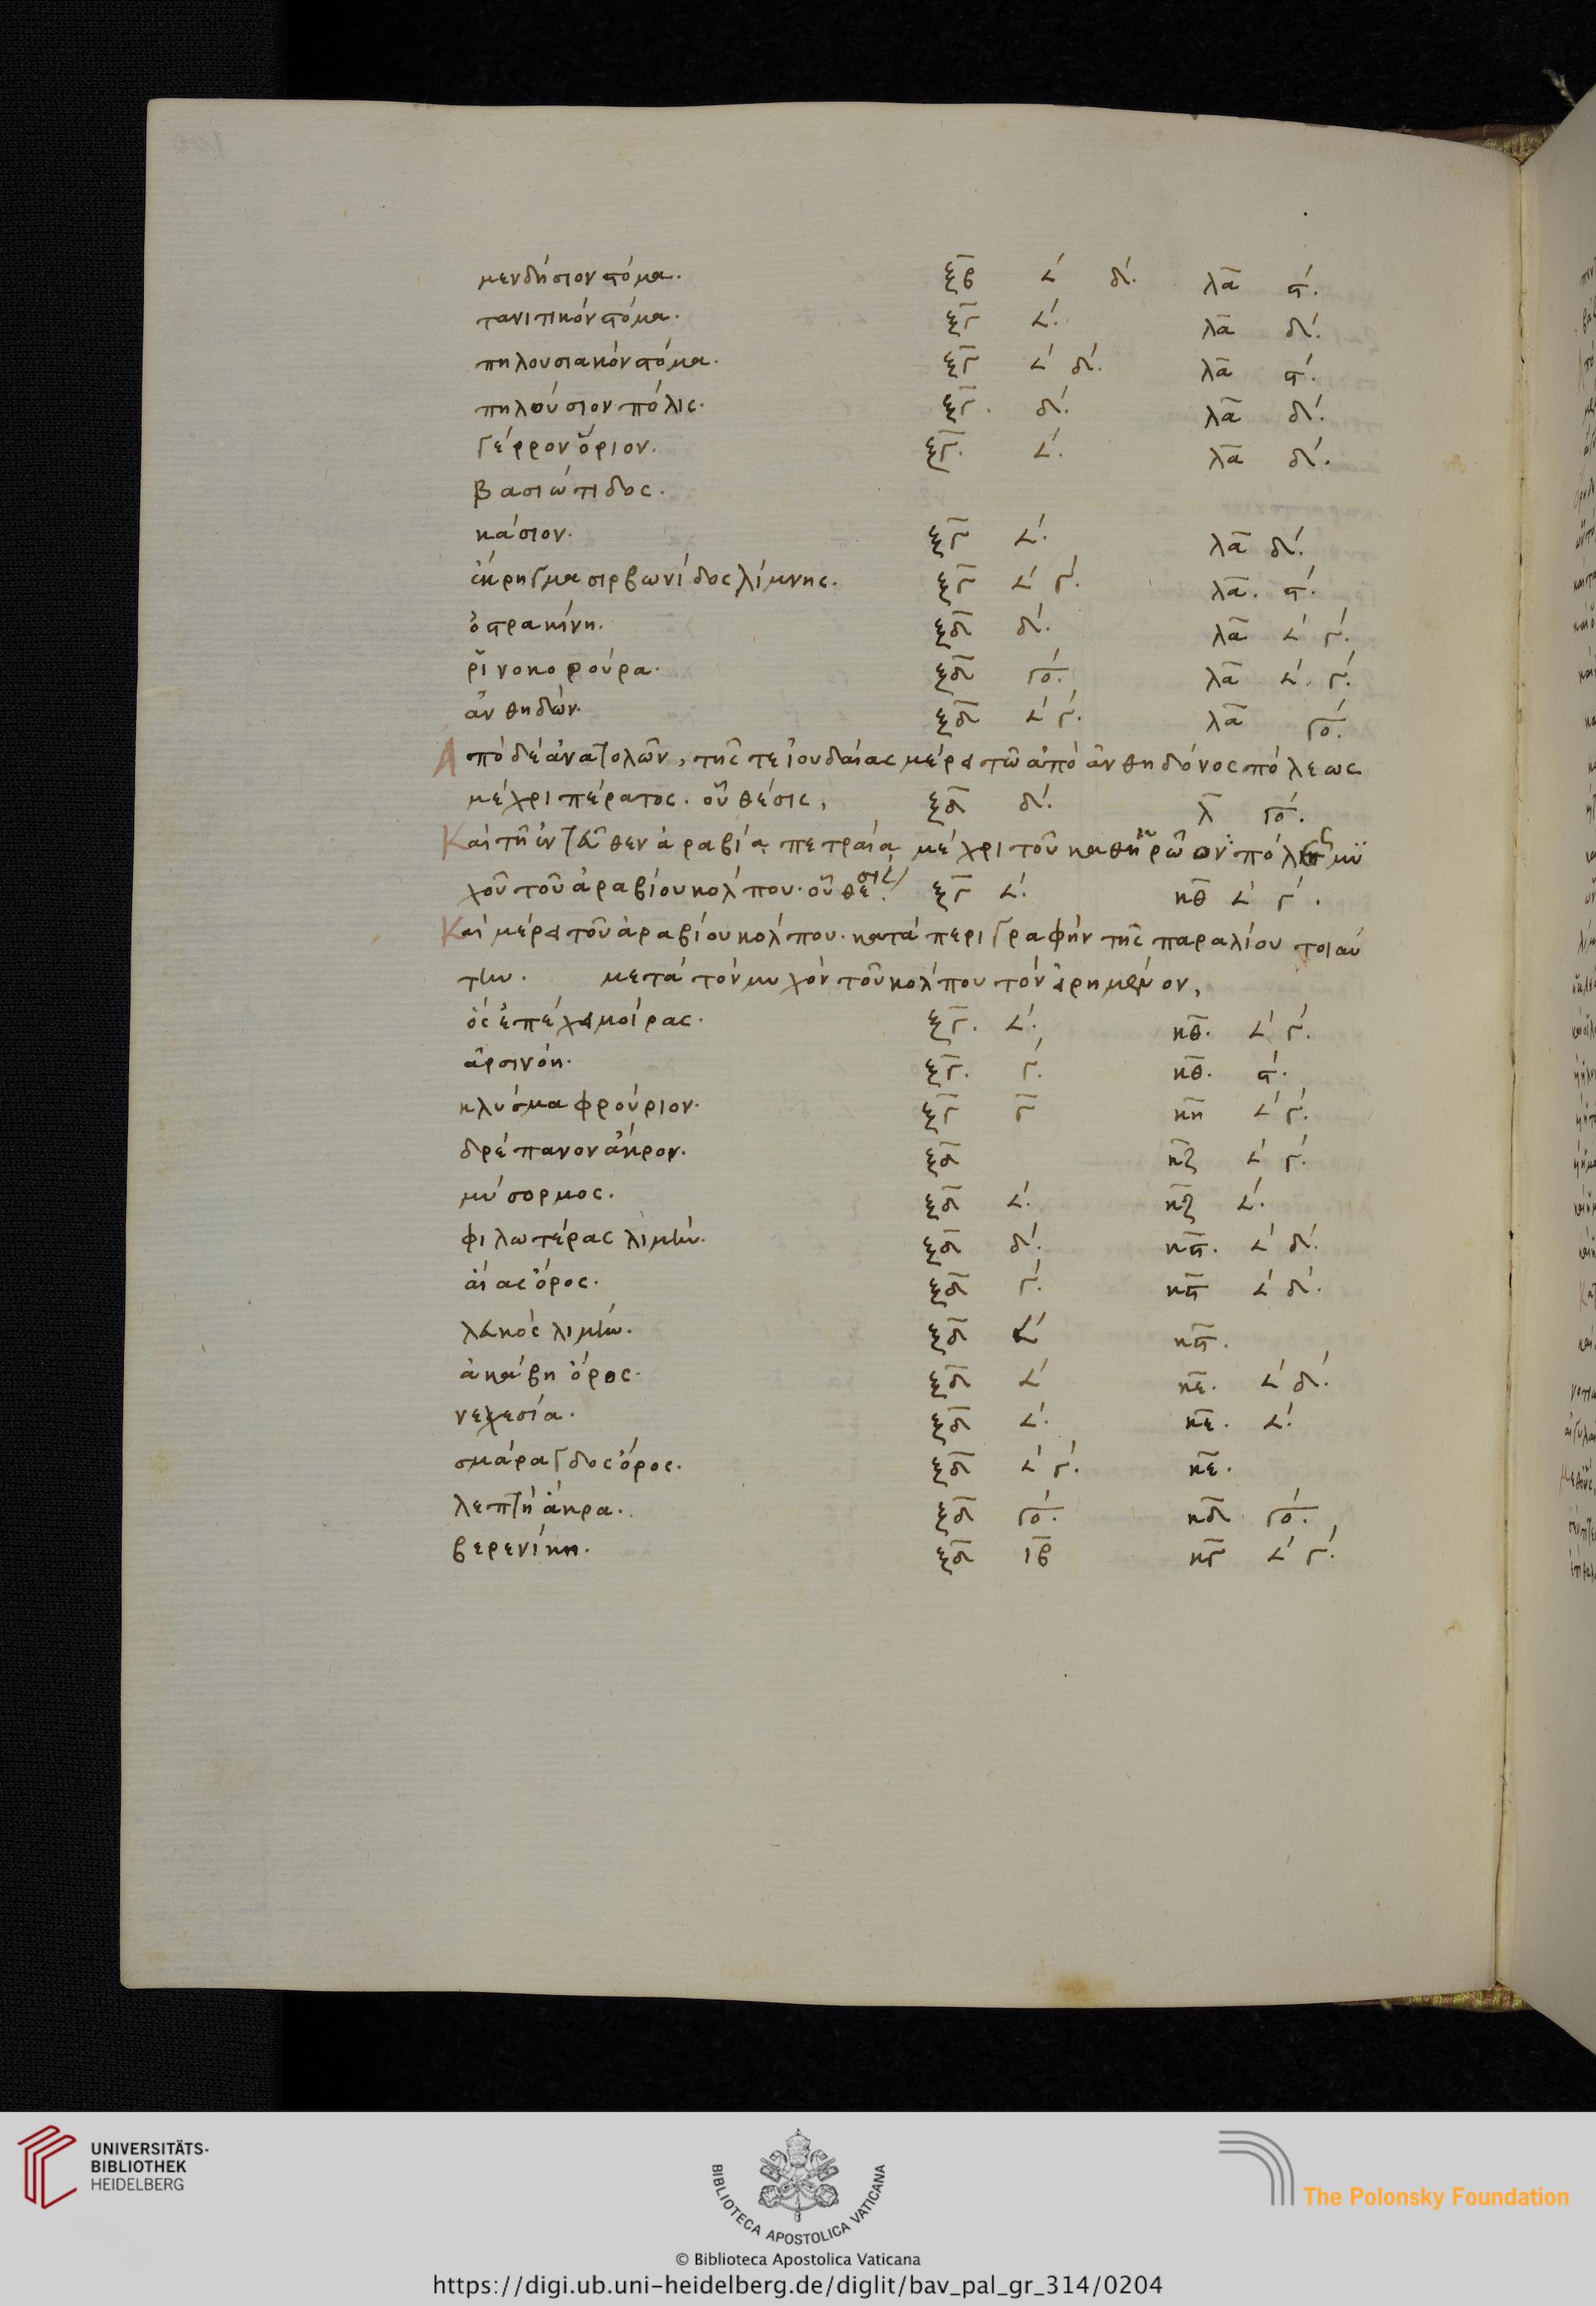 μενδήσιον στόμα. ξβ ∠ʹ δʹ. λα ϛʹ.
τανιτικόν στόμα. ξγ ∠ʹ. λα δʹ.
πηλουσιακόν στόμα. ξγ ∠ʹ δʹ. λα ϛʹ.
πηλούσιον πόλις. ξγ. δʹ. λα δʹ.
γέρρον ὅριον. ξγ. ∠ʹ. λα δʹ.
βασιώτιδος.
κάσιον. ξγ ∠ʹ. λα δʹ.
ἔκρηγμα σιρβωνίδος λίμνης. ξγ ∠ʹ γʹ. λα. ϛʹ.
ὀστρακίνη. ξδ δʹ. λα ∠ʹ γʹ.
ῥινοκορούρα. ξδ γοʹ. λα ∠ʹ. γʹ.
ἀνθηδών. ξδ ∠ʹ γʹ. λα γοʹ.
Ἀπό δέ ἀνατολῶν, τῆς τε ἰουδαίας μέρει τῶ ἀπό ἀνθηδόνος πόλεως
μέχρι πέρατος. οὗ θέσις, ξδ δʹ. λ γοʹ.
Καί τῆ ἐντεῦθεν ἀραβία πετραία μέχρι τοῦ καθ' ἡρώων πόλιν μυ
χοῦ τοῦ ἀραβίου κόλπου. οὗ θέσις. ξγ ∠ʹ. κθ ∠ʹ γʹ.
Καί μέρει τοῦ ἀραβίου κόλπου. κατά περιγραφήν τῆς παραλίου τοιαύ
την. μετά τόν μυχόν τοῦ κόλπου τόν εἰρημένον,
ὅς ἐπέχει μοίρας. ξγ. ∠ʹ. κθ. ∠ʹ γʹ.
ἀρσινόη. ξγ. γʹ. κθ. ϛʹ.
κλύσμα φρούριον. ξγ γ κη ∠ʹ γʹ.
δρέπανον ἄκρον. ξδ κζ ∠ʹ γʹ.
μύσορμος. ξδ ∠ʹ. κζ ∠ʹ.
φιλωτέρας λιμήν. ξδ δʹ. κϛ. ∠ʹ δʹ.
αἴας ὄρος. ξδ γʹ. κϛ ∠ʹ δʹ.
λευκός λιμήν. ξδ ∠ʹ κϛ.
ἀκάβη ὄρος. ξδ ∠ʹ κε. ∠ʹ δʹ.
νεχεσία. ξδ ∠ʹ. κε. ∠ʹ.
σμάραγδος ὄρος. ξδ ∠ʹ γʹ. κε.
λεπτή ἄκρα. ξδ γοʹ. κδ γοʹ.
βερενίκη. ξδ ιβ κγ ∠ʹ γʹ.
UNIVERSITÄTS-
BIBLIOTHEK
HEIDELBERG
BIBLIOTECA APOSTOLICA VATICANA
The Polonsky Foundation
© Biblioteca Apostolica Vaticana
https://digi.ub.uni-heidelberg.de/diglit/bav_pal_gr_314/0204